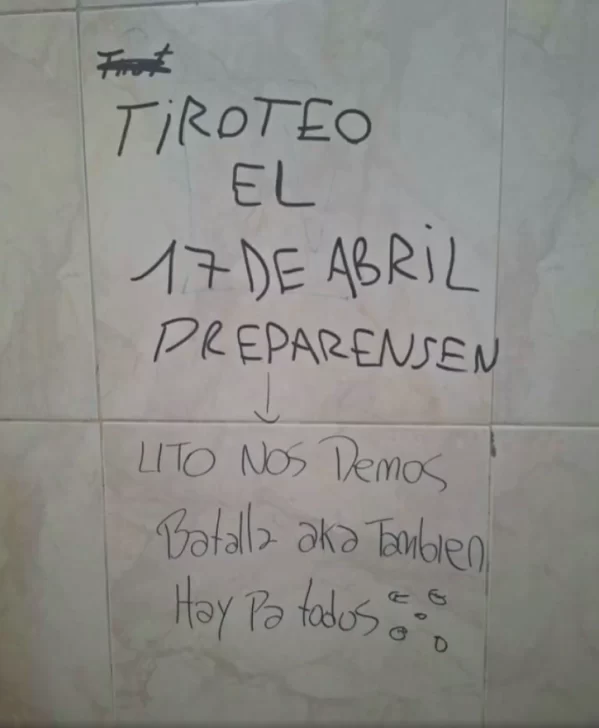 Tirot
TiROTEO
EL
17 DE ABRiL
PREPARENSEN
LITO NOS Demos
Batalla aka Tambien
Hay Pa todos